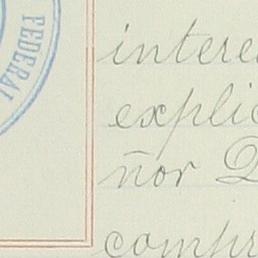 FEDERAL
intere
explic
ñor D
compr